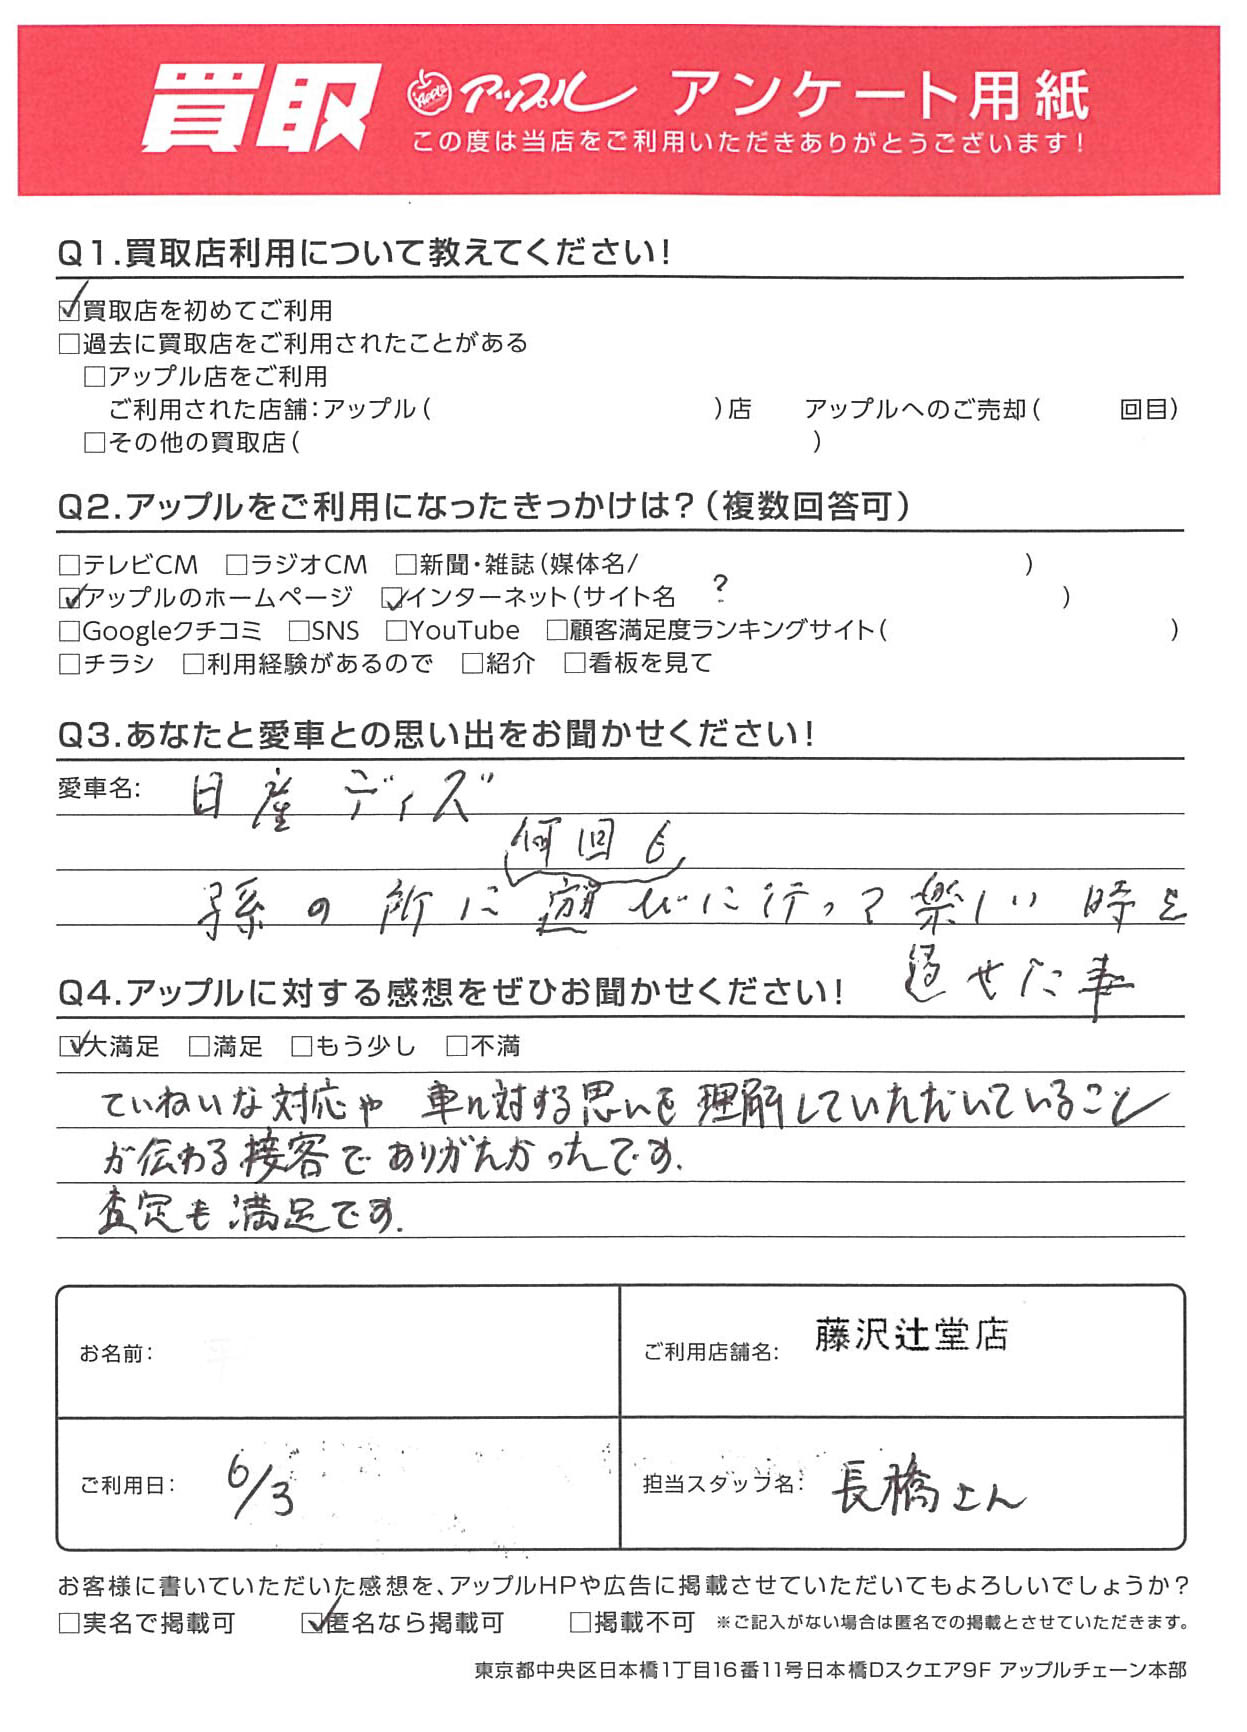 買取 Apple アップル アンケート用紙
この度は当店をご利用いただきありがとうございます!
Q1.買取店利用について教えてください!
☑買取店を初めてご利用
□過去に買取店をご利用されたことがある
□アップル店をご利用
ご利用された店舗:アップル( )店 アップルへのご売却( 回目)
□その他の買取店( )
Q2.アップルをご利用になったきっかけは?(複数回答可)
□テレビCM □ラジオCM □新聞・雑誌(媒体名/ )
☑アップルのホームページ ☑インターネット(サイト名 ? )
□Googleクチコミ □SNS □YouTube □顧客満足度ランキングサイト( )
□チラシ □利用経験があるので □紹介 □看板を見て
Q3.あなたと愛車との思い出をお聞かせください!
愛車名: 日産 デイズ
何回も
孫の所に遊びに行って楽しい時を
過せた事
Q4.アップルに対する感想をぜひお聞かせください!
☑大満足 □満足 □もう少し □不満
ていねいな対応や 車に対する思いを理解していただいていること
が伝わる接客でありがたかったです.
査定も満足です.
お名前:
ご利用店舗名: 藤沢辻堂店
ご利用日: 6/3
担当スタッフ名: 長橋さん
お客様に書いていただいた感想を、アップルHPや広告に掲載させていただいてもよろしいでしょうか?
□実名で掲載可 ☑匿名なら掲載可 □掲載不可 ※ご記入がない場合は匿名での掲載とさせていただきます。
東京都中央区日本橋1丁目16番11号日本橋Dスクエア9F アップルチェーン本部